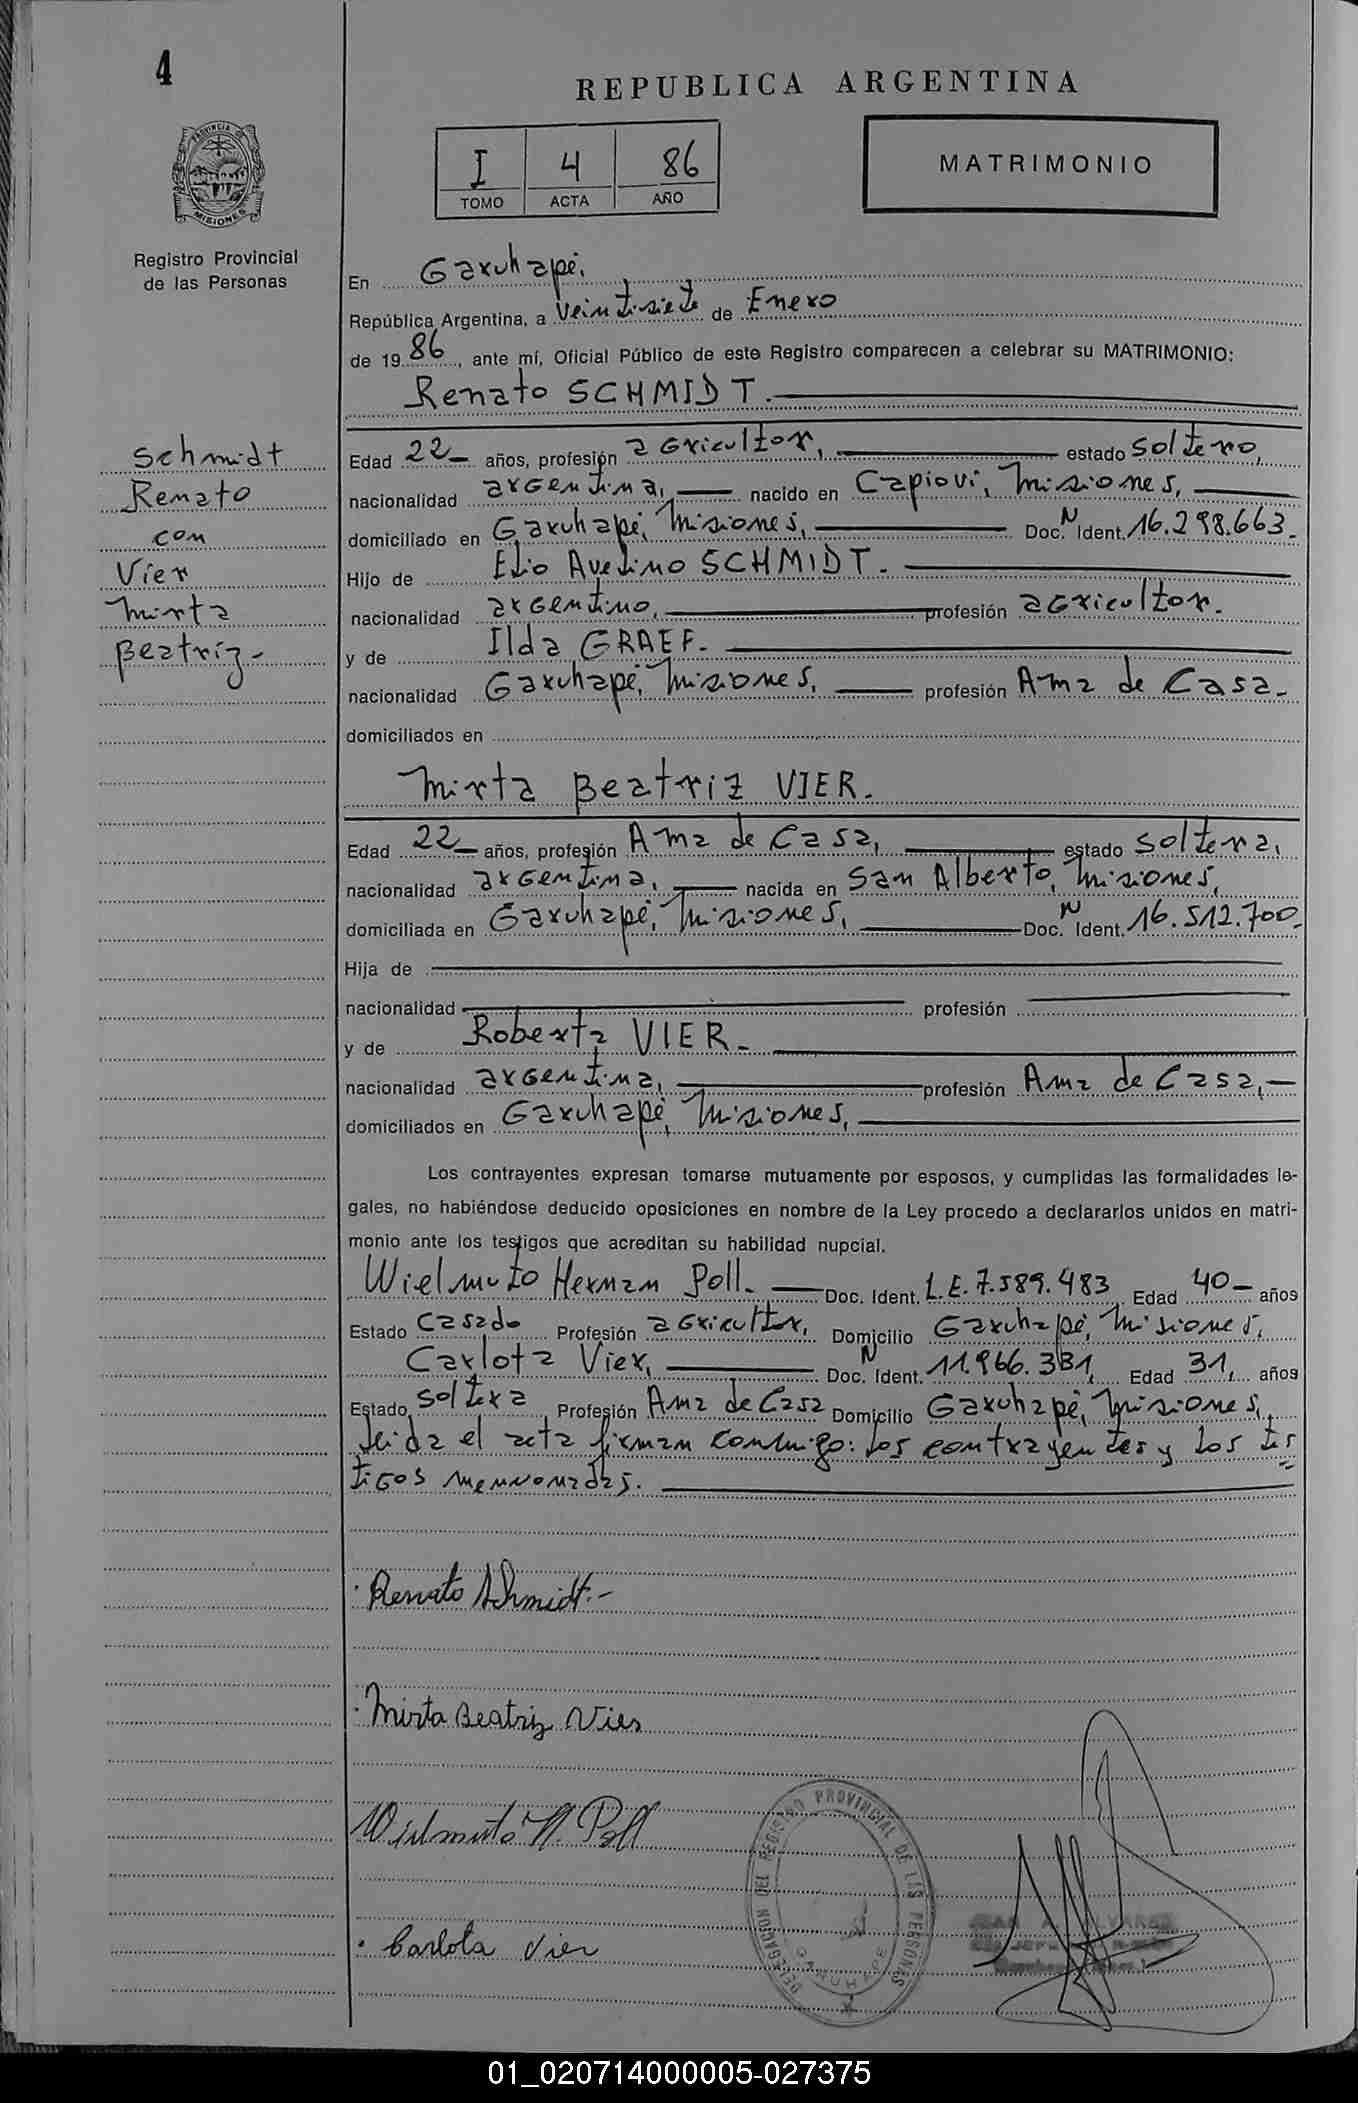 4
REPUBLICA ARGENTINA
I 4 86
TOMO ACTA AÑO
MATRIMONIO
PROVINCIA DE
MISIONES
Registro Provincial
de las Personas
En Garuhapé,
República Argentina, a Veintisiete de Enero
de 1986, ante mí, Oficial Público de este Registro comparecen a celebrar su MATRIMONIO:
Renato SCHMIDT.
Schmidt
Renato
con
Vier
Mirta
Beatriz-
Edad 22 años, profesión agricultor, estado soltero,
nacionalidad argentina, nacido en Capiovi, Misiones,
domiciliado en Garuhapé, Misiones, Doc. N Ident. 16.298.663.
Hijo de Elio Avelino SCHMIDT.
nacionalidad argentino, profesión agricultor.
y de Ilda GRAEF.
nacionalidad Garuhapé, Misiones, profesión Ama de Casa-
domiciliados en
Mirta Beatriz VIER.
Edad 22 años, profesión Ama de Casa, estado soltera,
nacionalidad argentina, nacida en San Alberto, Misiones,
domiciliada en Garuhapé, Misiones, Doc. N Ident. 16.512.700-
Hija de
nacionalidad profesión
y de Roberta VIER-
nacionalidad argentina, profesión Ama de Casa,-
domiciliados en Garuhapé, Misiones,
Los contrayentes expresan tomarse mutuamente por esposos, y cumplidas las formalidades le-
gales, no habiéndose deducido oposiciones en nombre de la Ley procedo a declararlos unidos en matri-
monio ante los testigos que acreditan su habilidad nupcial.
Wielmuto Herman Poll. Doc. Ident. L.E. 7.589.483 Edad 40- años
Estado casado Profesión agricultor, Domicilio Garuhapé, Misiones,
Carlota Vier, Doc. N Ident. 11.966.331, Edad 31, años
Estado soltera Profesión Ama de Casa Domicilio Garuhapé, Misiones,
Leida el acta firman conmigo: los contrayentes y los tes
tigos mencionados.
Renato Schmidt.-
Mirta Beatriz Vier
Wielmuto H. Poll
Carlota Vier
DELEGACION DEL REGISTRO PROVINCIAL DE LAS PERSONAS
GARUHAPE
01_020714000005-027375